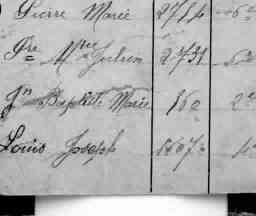 Pierre Marie 2714
Pre Mie Julien 2731
Jn Baptiste Marie 160
Louis Joseph 1607